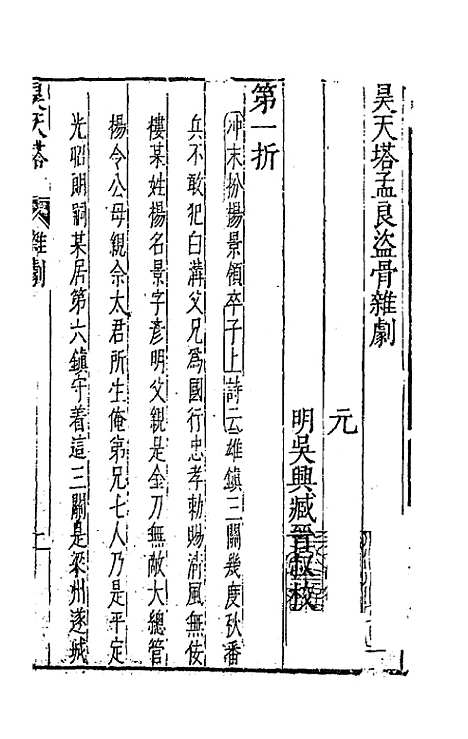 昊天塔孟良盜骨雜劇
元
明吳興臧晉叔校
第一折
冲末扮楊景領卒子上詩云雄鎮三關幾度秋番
兵不敢犯白溝父兄爲國行忠孝勅賜清風無佞
樓某姓楊名景字彥明父親是金刀無敵大總管
楊令公母親佘太君所生俺第兄七人乃是平定
光昭朗嗣某居第六鎮守着這三關是梁州遂城
昊天塔
雜劇
一